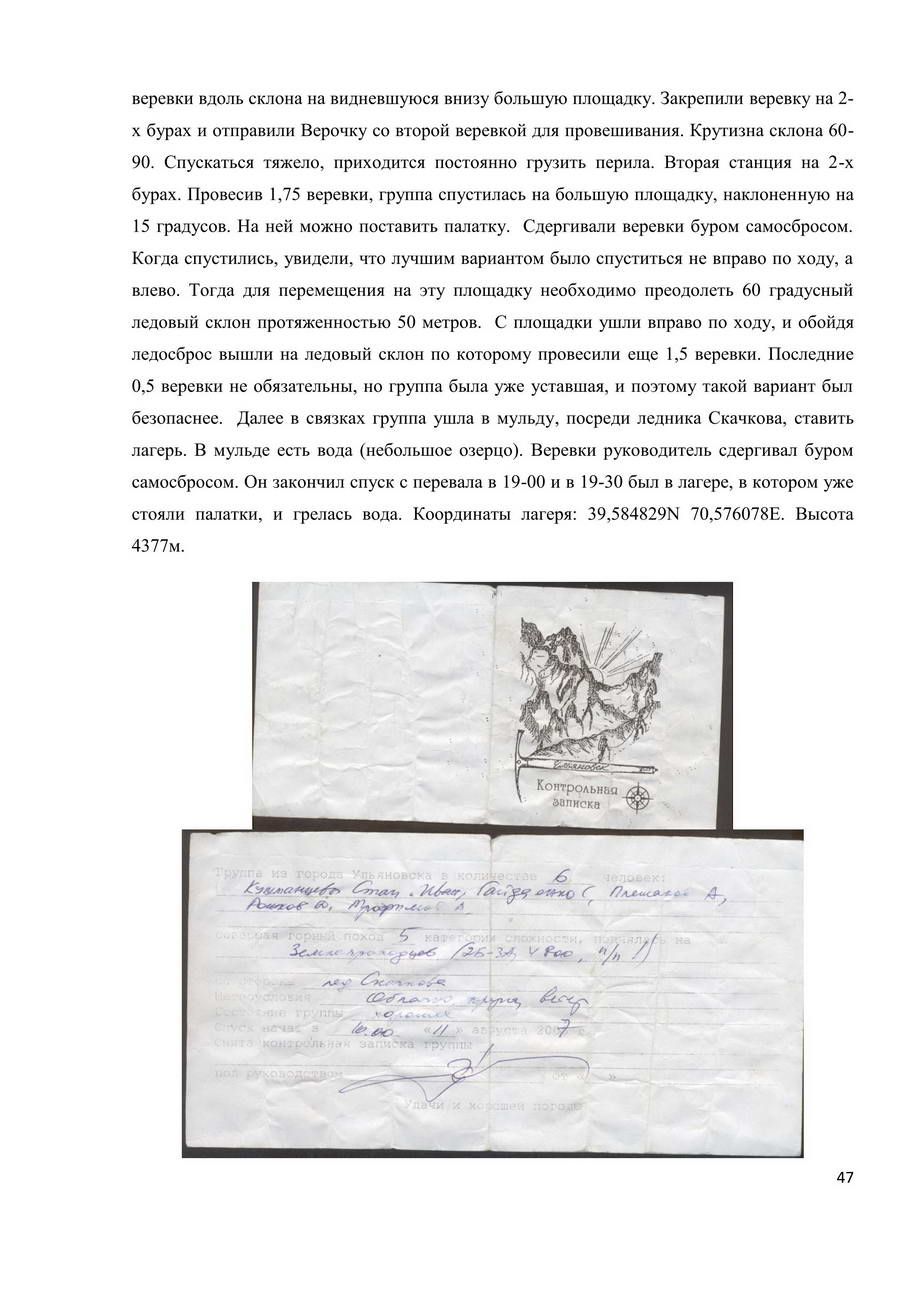 веревки вдоль склона на видневшуюся внизу большую площадку. Закрепили веревку на 2-
х бурах и отправили Верочку со второй веревкой для провешивания. Крутизна склона 60-
90. Спускаться тяжело, приходится постоянно грузить перила. Вторая станция на 2-х
бурах. Провесив 1,75 веревки, группа спустилась на большую площадку, наклоненную на
15 градусов. На ней можно поставить палатку.  Сдергивали веревки буром самосбросом.
Когда спустились, увидели, что лучшим вариантом было спуститься не вправо по ходу, а
влево. Тогда для перемещения на эту площадку необходимо преодолеть 60 градусный
ледовый склон протяженностью 50 метров.  С площадки ушли вправо по ходу, и обойдя
ледосброс вышли на ледовый склон по которому провесили еще 1,5 веревки. Последние
0,5 веревки не обязательны, но группа была уже уставшая, и поэтому такой вариант был
безопаснее.  Далее в связках группа ушла в мульду, посреди ледника Скачкова, ставить
лагерь. В мульде есть вода (небольшое озерцо). Веревки руководитель сдергивал буром
самосбросом. Он закончил спуск с перевала в 19-00 и в 19-30 был в лагере, в котором уже
стояли палатки, и грелась вода. Координаты лагеря: 39,584829N 70,576078E. Высота
4377м.
Ульяновск
Контрольная
записка
Группа из города Ульяновска в количестве 6 человек:
Стан, Иван, Гайдученко С, Плешаков А,
совершая горный поход 5 категории сложности, поднялась на
Землепроходцев (2Б-3А, 4800, п/п !)
лед Скачкова
Метеоусловия Облачно, крупа, ветер
Состояние группы хорошее
Спуск начат в 10.00 «11» августа 2007 г.
Снята контрольная записка группы
под руководством от « »
Удачи и хорошей погоды
47